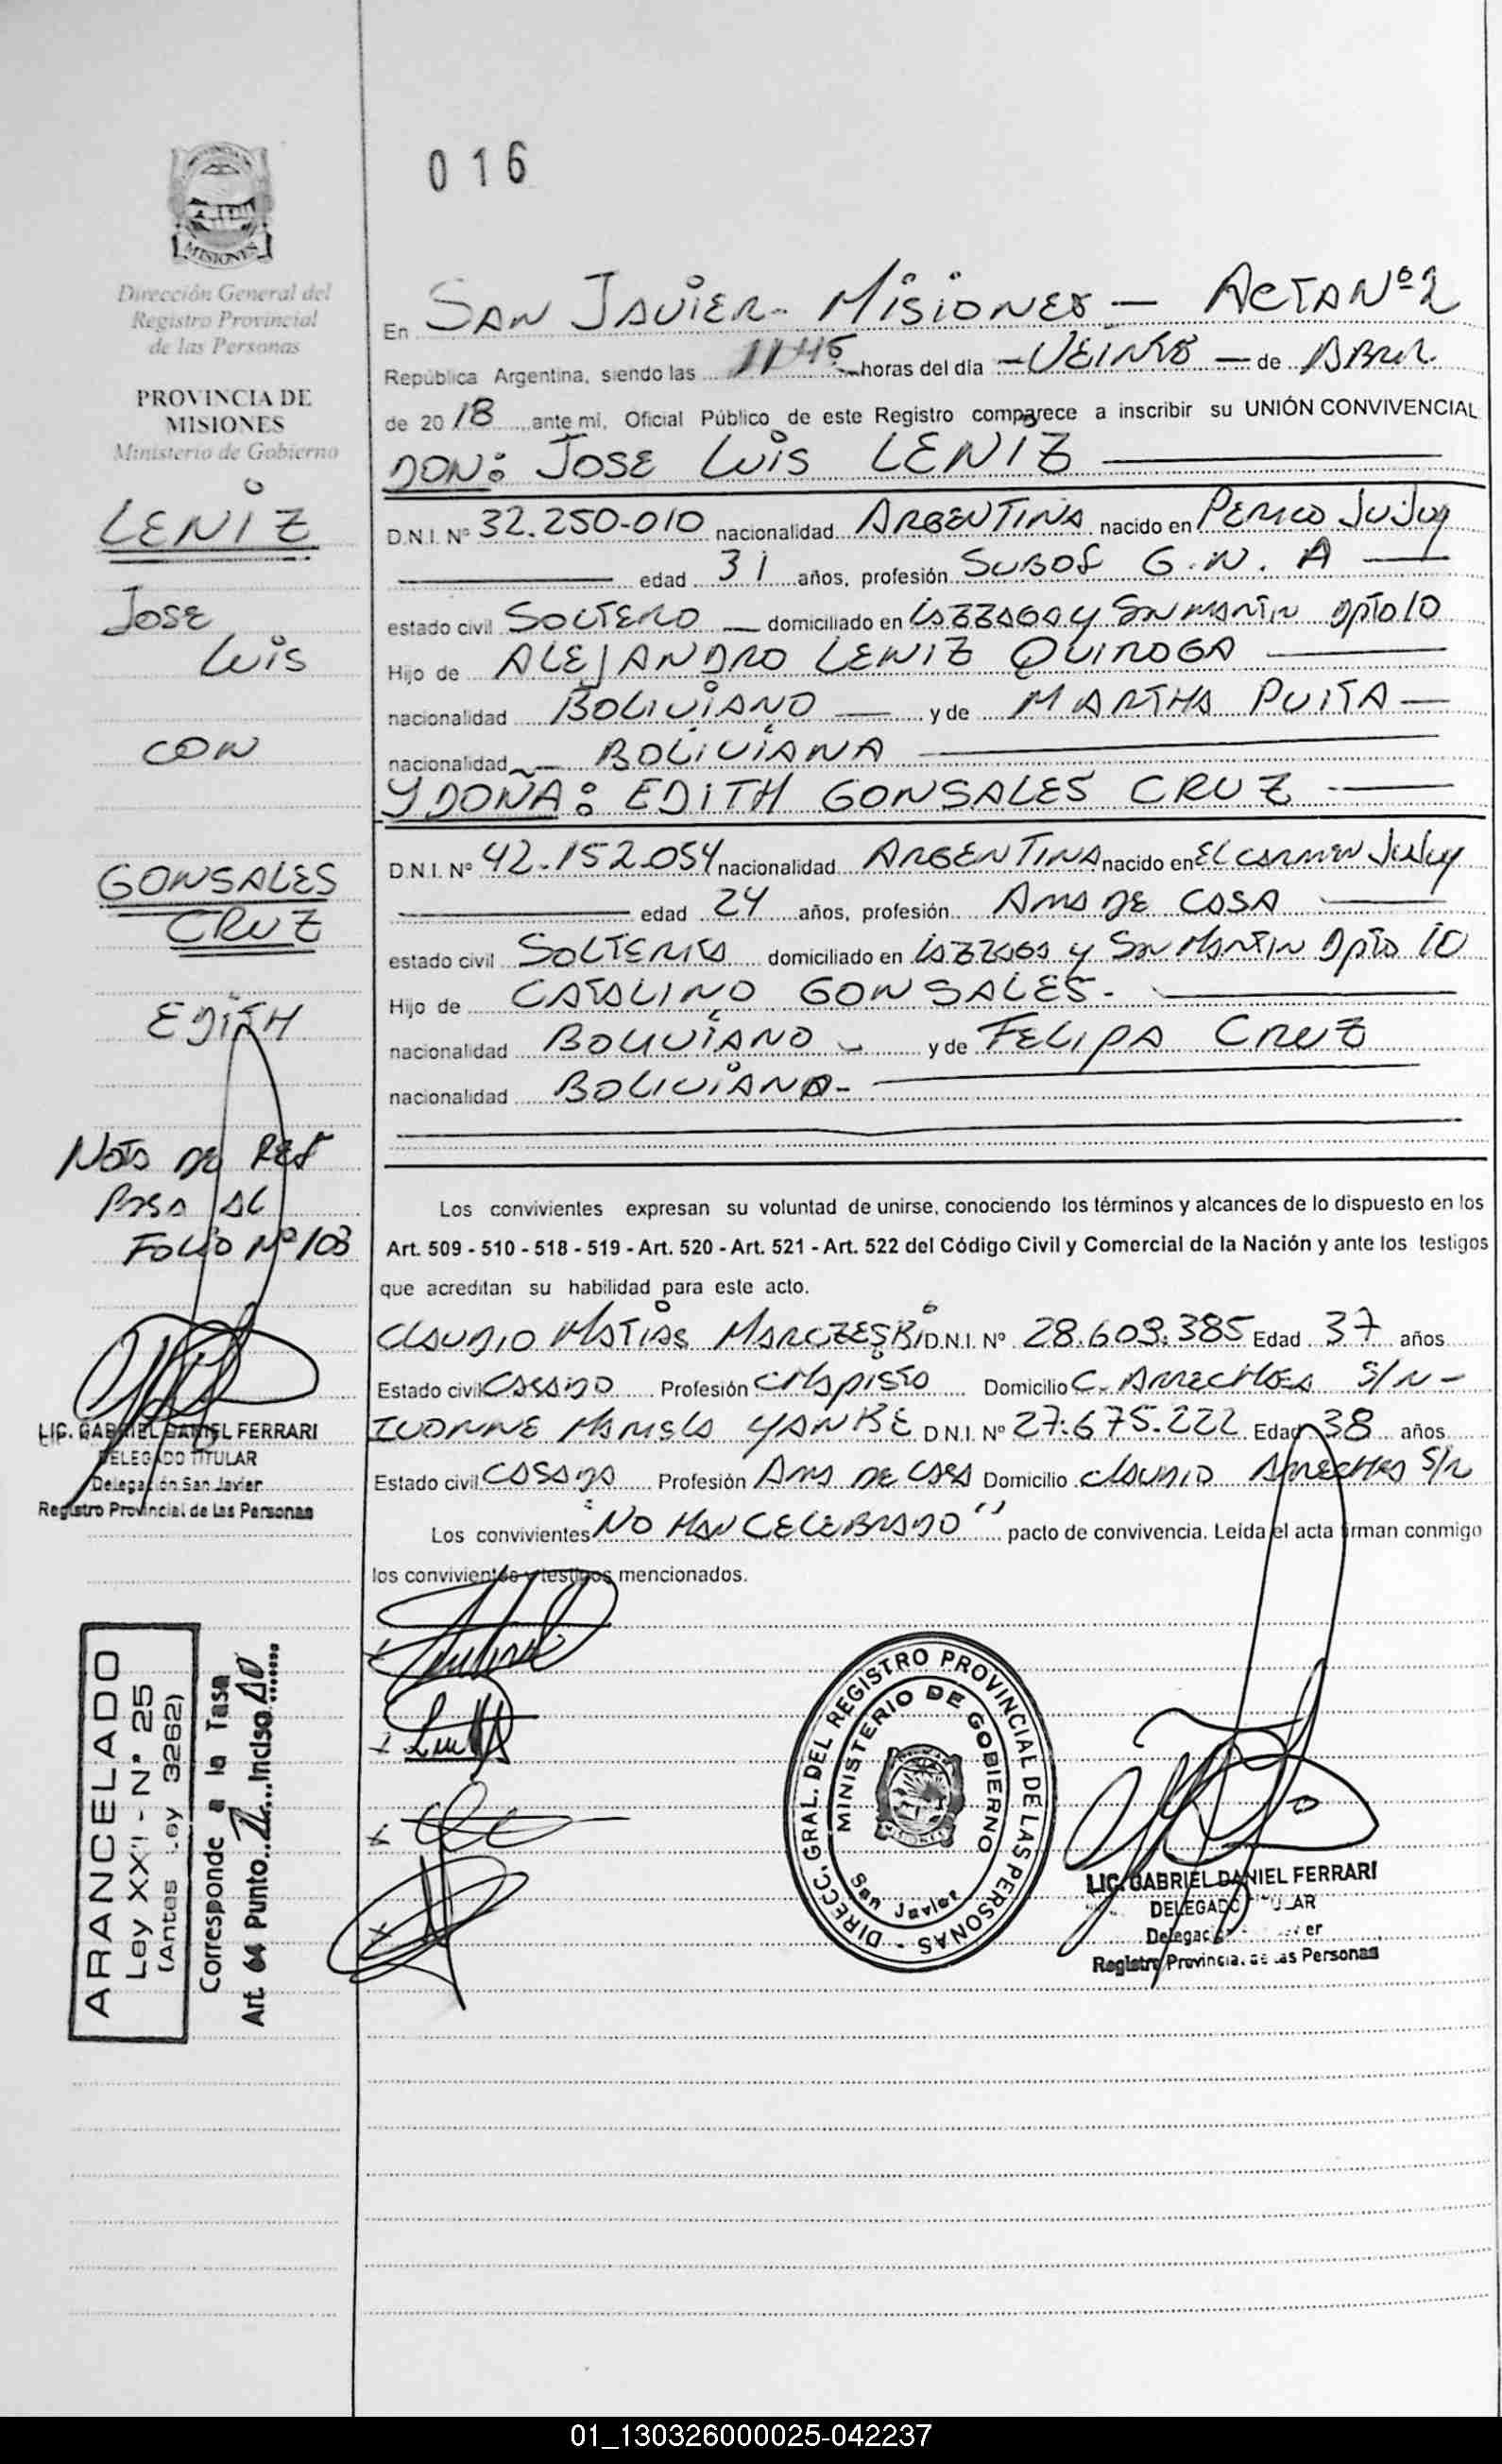 016
PROVINCIA DE
MISIONES
Dirección General del
Registro Provincial
de las Personas
PROVINCIA DE
MISIONES
Ministerio de Gobierno
LENIZ
JOSE
LUIS
CON
GONSALES
CRUZ
EDITH
NOTA DE REF
PASA AL
FOLIO Nº 103
LIC. GABRIEL DANIEL FERRARI
DELEGADO TITULAR
Delegación San Javier
Registro Provincial de las Personas
ARANCELADO
Ley XXII - Nº 25
(Antes Ley 3262)
Corresponde a la Tasa
Art. Punto Inciso
En SAN JAVIER - MISIONES - ACTA Nº 2
República Argentina, siendo las 11 45 horas del día - VEINTE - de ABRIL
de 2018 ante mi, Oficial Público de este Registro comparece a inscribir su UNIÓN CONVIVENCIAL
DON: JOSE LUIS LENIZ
D.N.I. Nº 32.250.010 nacionalidad ARGENTINA nacido en PERICO JUJUY
edad 31 años, profesión SUBOF G.N.A
estado civil SOLTERO domiciliado en LAZZAGA Y SAN MARTIN DPTO 10
Hijo de ALEJANDRO LENIZ QUIROGA
nacionalidad BOLIVIANO y de MARTHA PUITA
nacionalidad BOLIVIANA
Y DOÑA: EDITH GONSALES CRUZ
D.N.I. Nº 42.152.054 nacionalidad ARGENTINA nacido en EL CARMEN JUJUY
edad 24 años, profesión AMA DE CASA
estado civil SOLTERA domiciliado en LAZZAGA Y SAN MARTIN DPTO 10
Hijo de CATALINO GONSALES.
nacionalidad BOLIVIANO y de FELIPA CRUZ
nacionalidad BOLIVIANA-
Los convivientes expresan su voluntad de unirse, conociendo los términos y alcances de lo dispuesto en los
Art. 509 - 510 - 518 - 519 - Art. 520 - Art. 521 - Art. 522 del Código Civil y Comercial de la Nación y ante los testigos
que acreditan su habilidad para este acto.
CLAUDIO MATIAS MARCZESKI D.N.I. Nº 28.609.385 Edad 37 años
Estado civil CASADO Profesión CHAPISTA Domicilio C. ARRECHEA S/N -
IVONNE MARIELA YANKE D.N.I. Nº 27.675.222 Edad 38 años
Estado civil CASADA Profesión AMA DE CASA Domicilio CLAUDIO ARRECHEA S/N
Los convivientes "NO HAN CELEBRADO" pacto de convivencia. Leída el acta firman conmigo
los convivientes y testigos mencionados.
DIRECC. GRAL. DEL REGISTRO PROVINCIAL DE LAS PERSONAS -
MINISTERIO DE GOBIERNO
San Javier
LIC. GABRIEL DANIEL FERRARI
DELEGADO TITULAR
Registro Provincial de las Personas
01_130326000025-042237